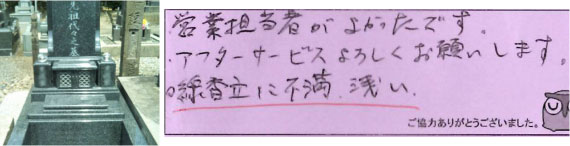 先祖代々之墓
営業担当者がよかったです。
・アフターサービスよろしくお願いします。
○線香立に不満、浅い、
ご協力ありがとうございました。